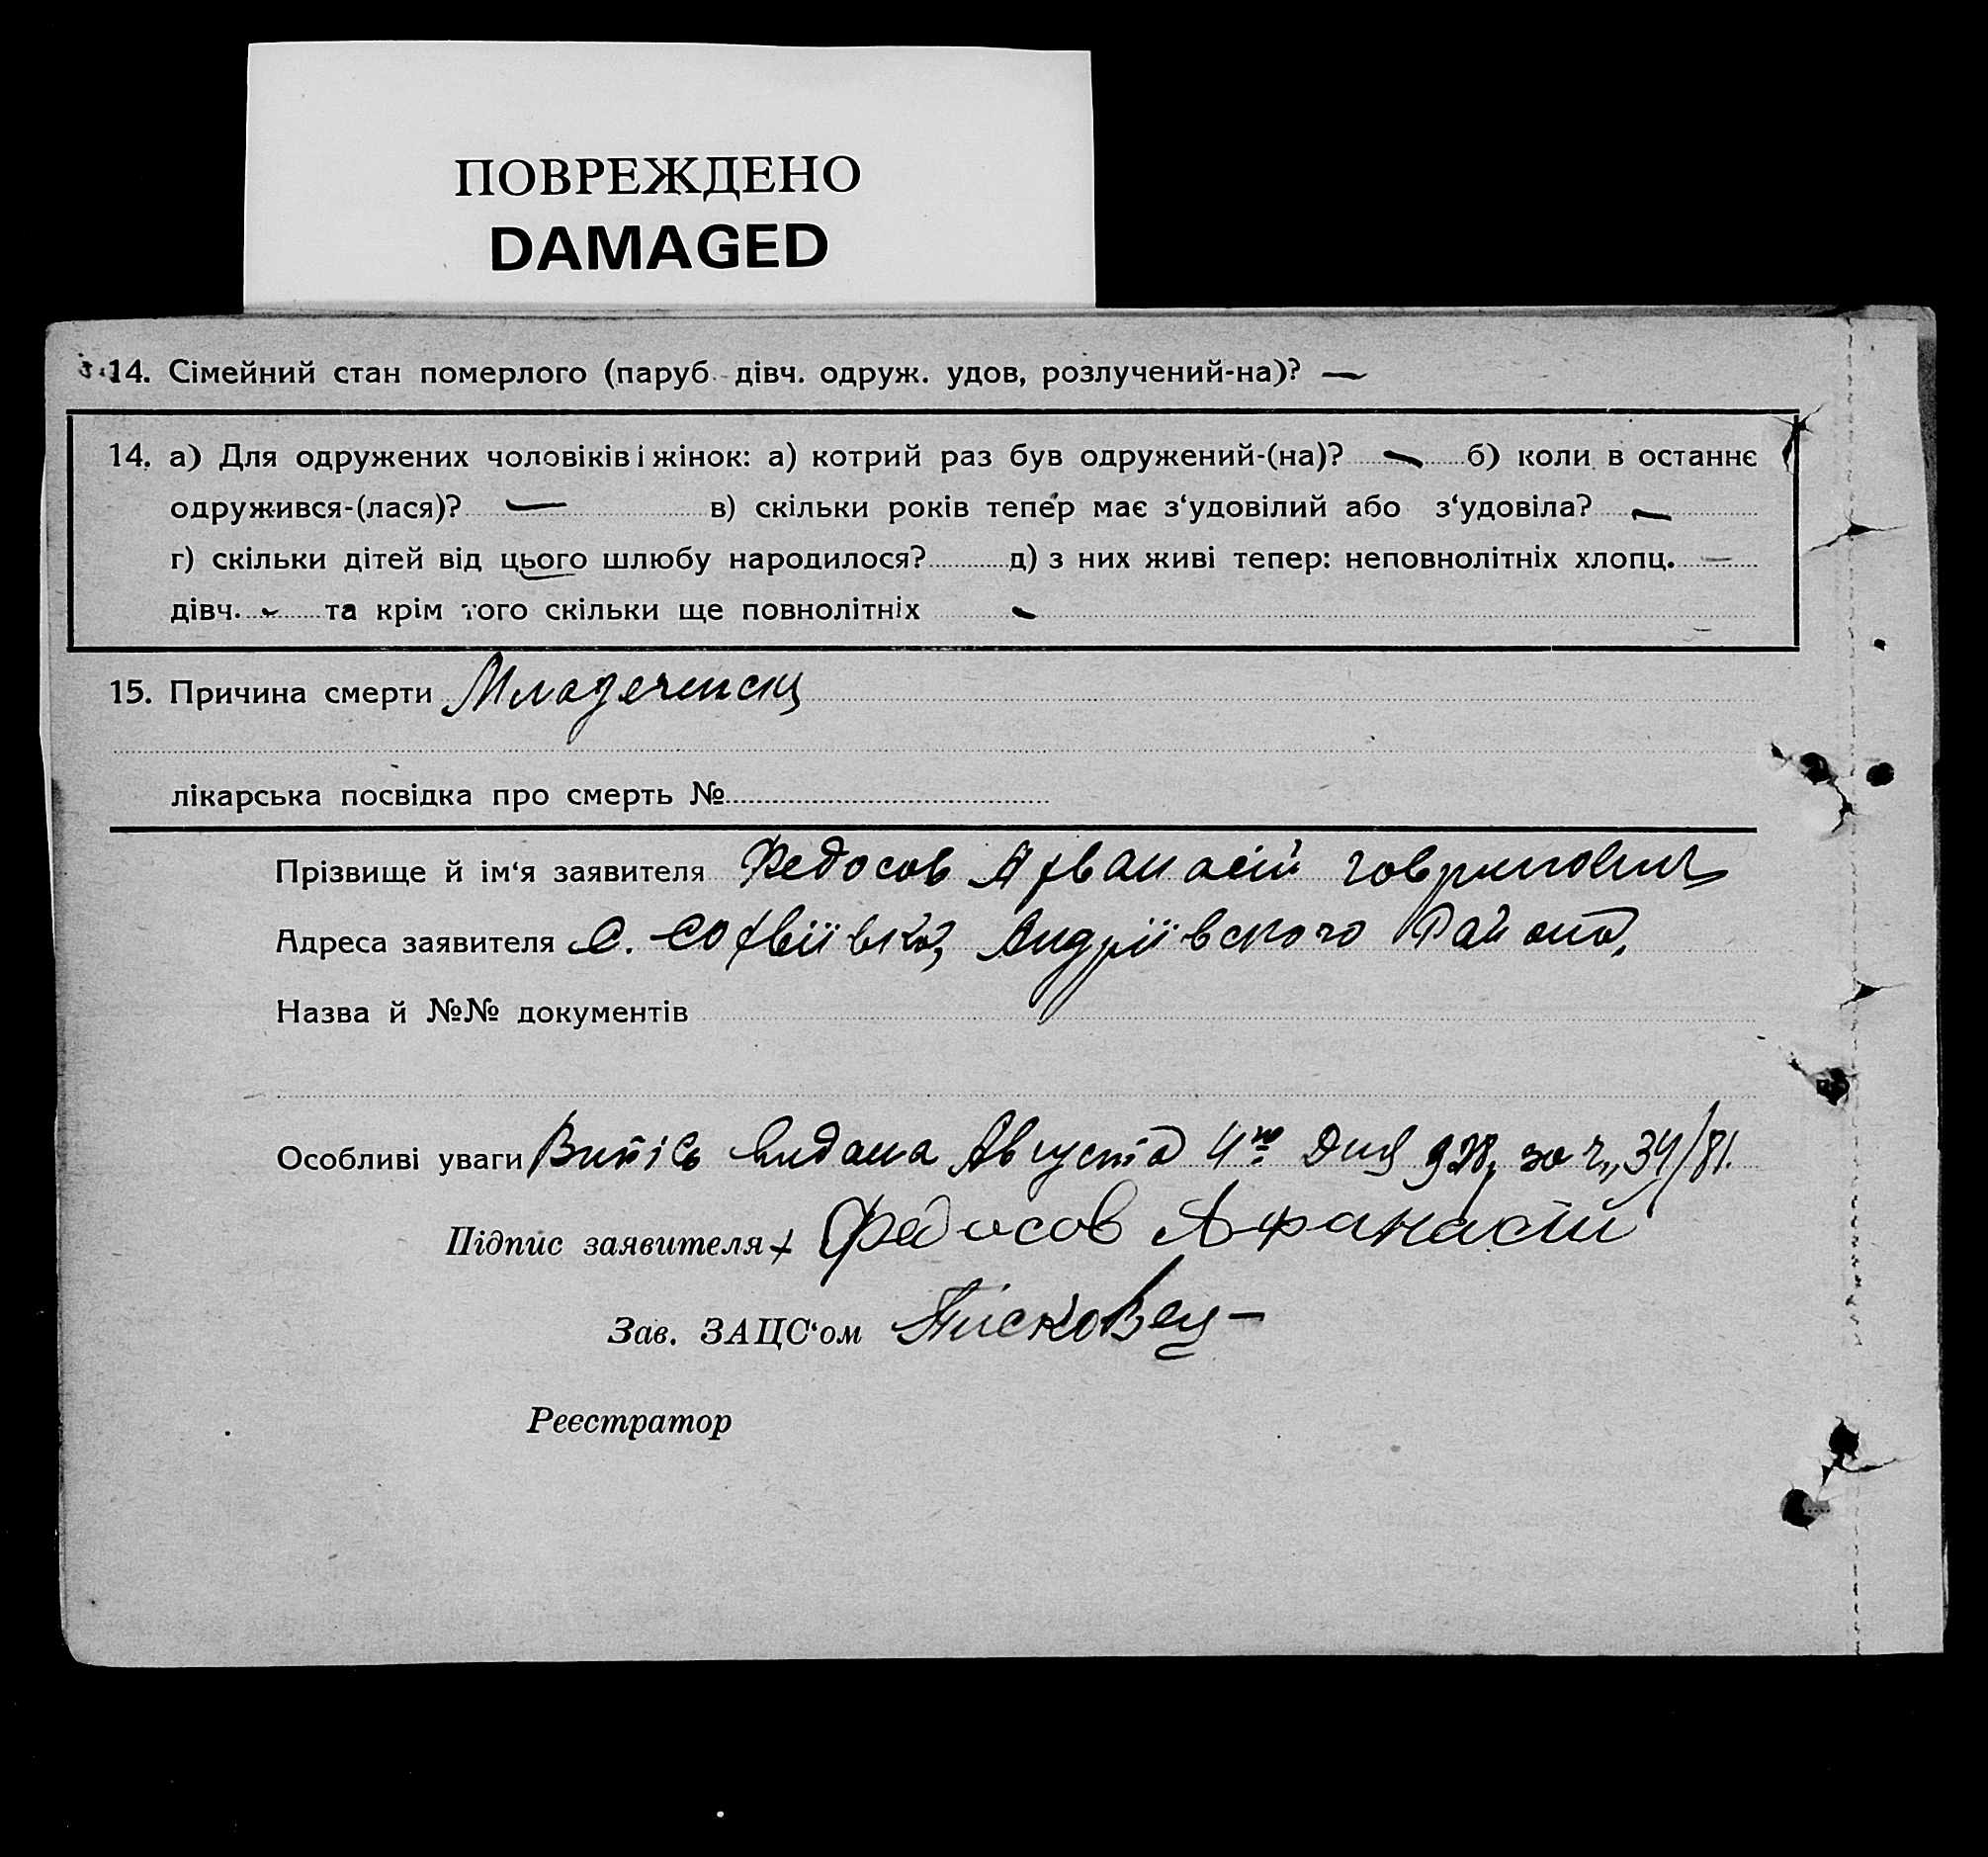 ПОВРЕЖДЕНО
DAMAGED
14. Сімейний стан померлого (паруб. дівч. одруж. удов, розлучений-на)? —
14. а) Для одружених чоловіків і жінок: а) котрий раз був одружений-(на)? — б) коли в останнє
одружився-(лася)? — в) скільки років тепер має з‘удовілий або з‘удовіла? —
г) скільки дітей від цього шлюбу народилося? д) з них живі тепер: неповнолітніх хлопц. —
дівч. - та крім того скільки ще повнолітніх -
15. Причина смерти Младеченски
лікарська посвідка про смерть №
Прізвище й ім‘я заявителя Федосов Афанасій Говрилович
Адреса заявителя С. Софіївка, Андріївского Району,
Назва й №№ документів
Особливі уваги Випісь видана Августа 4го Дня 928, за ч,, 34/81.
Підпис заявителя + Федосов Афанасій
Зав. ЗАЦС‘ом Пісковец
Реєстратор